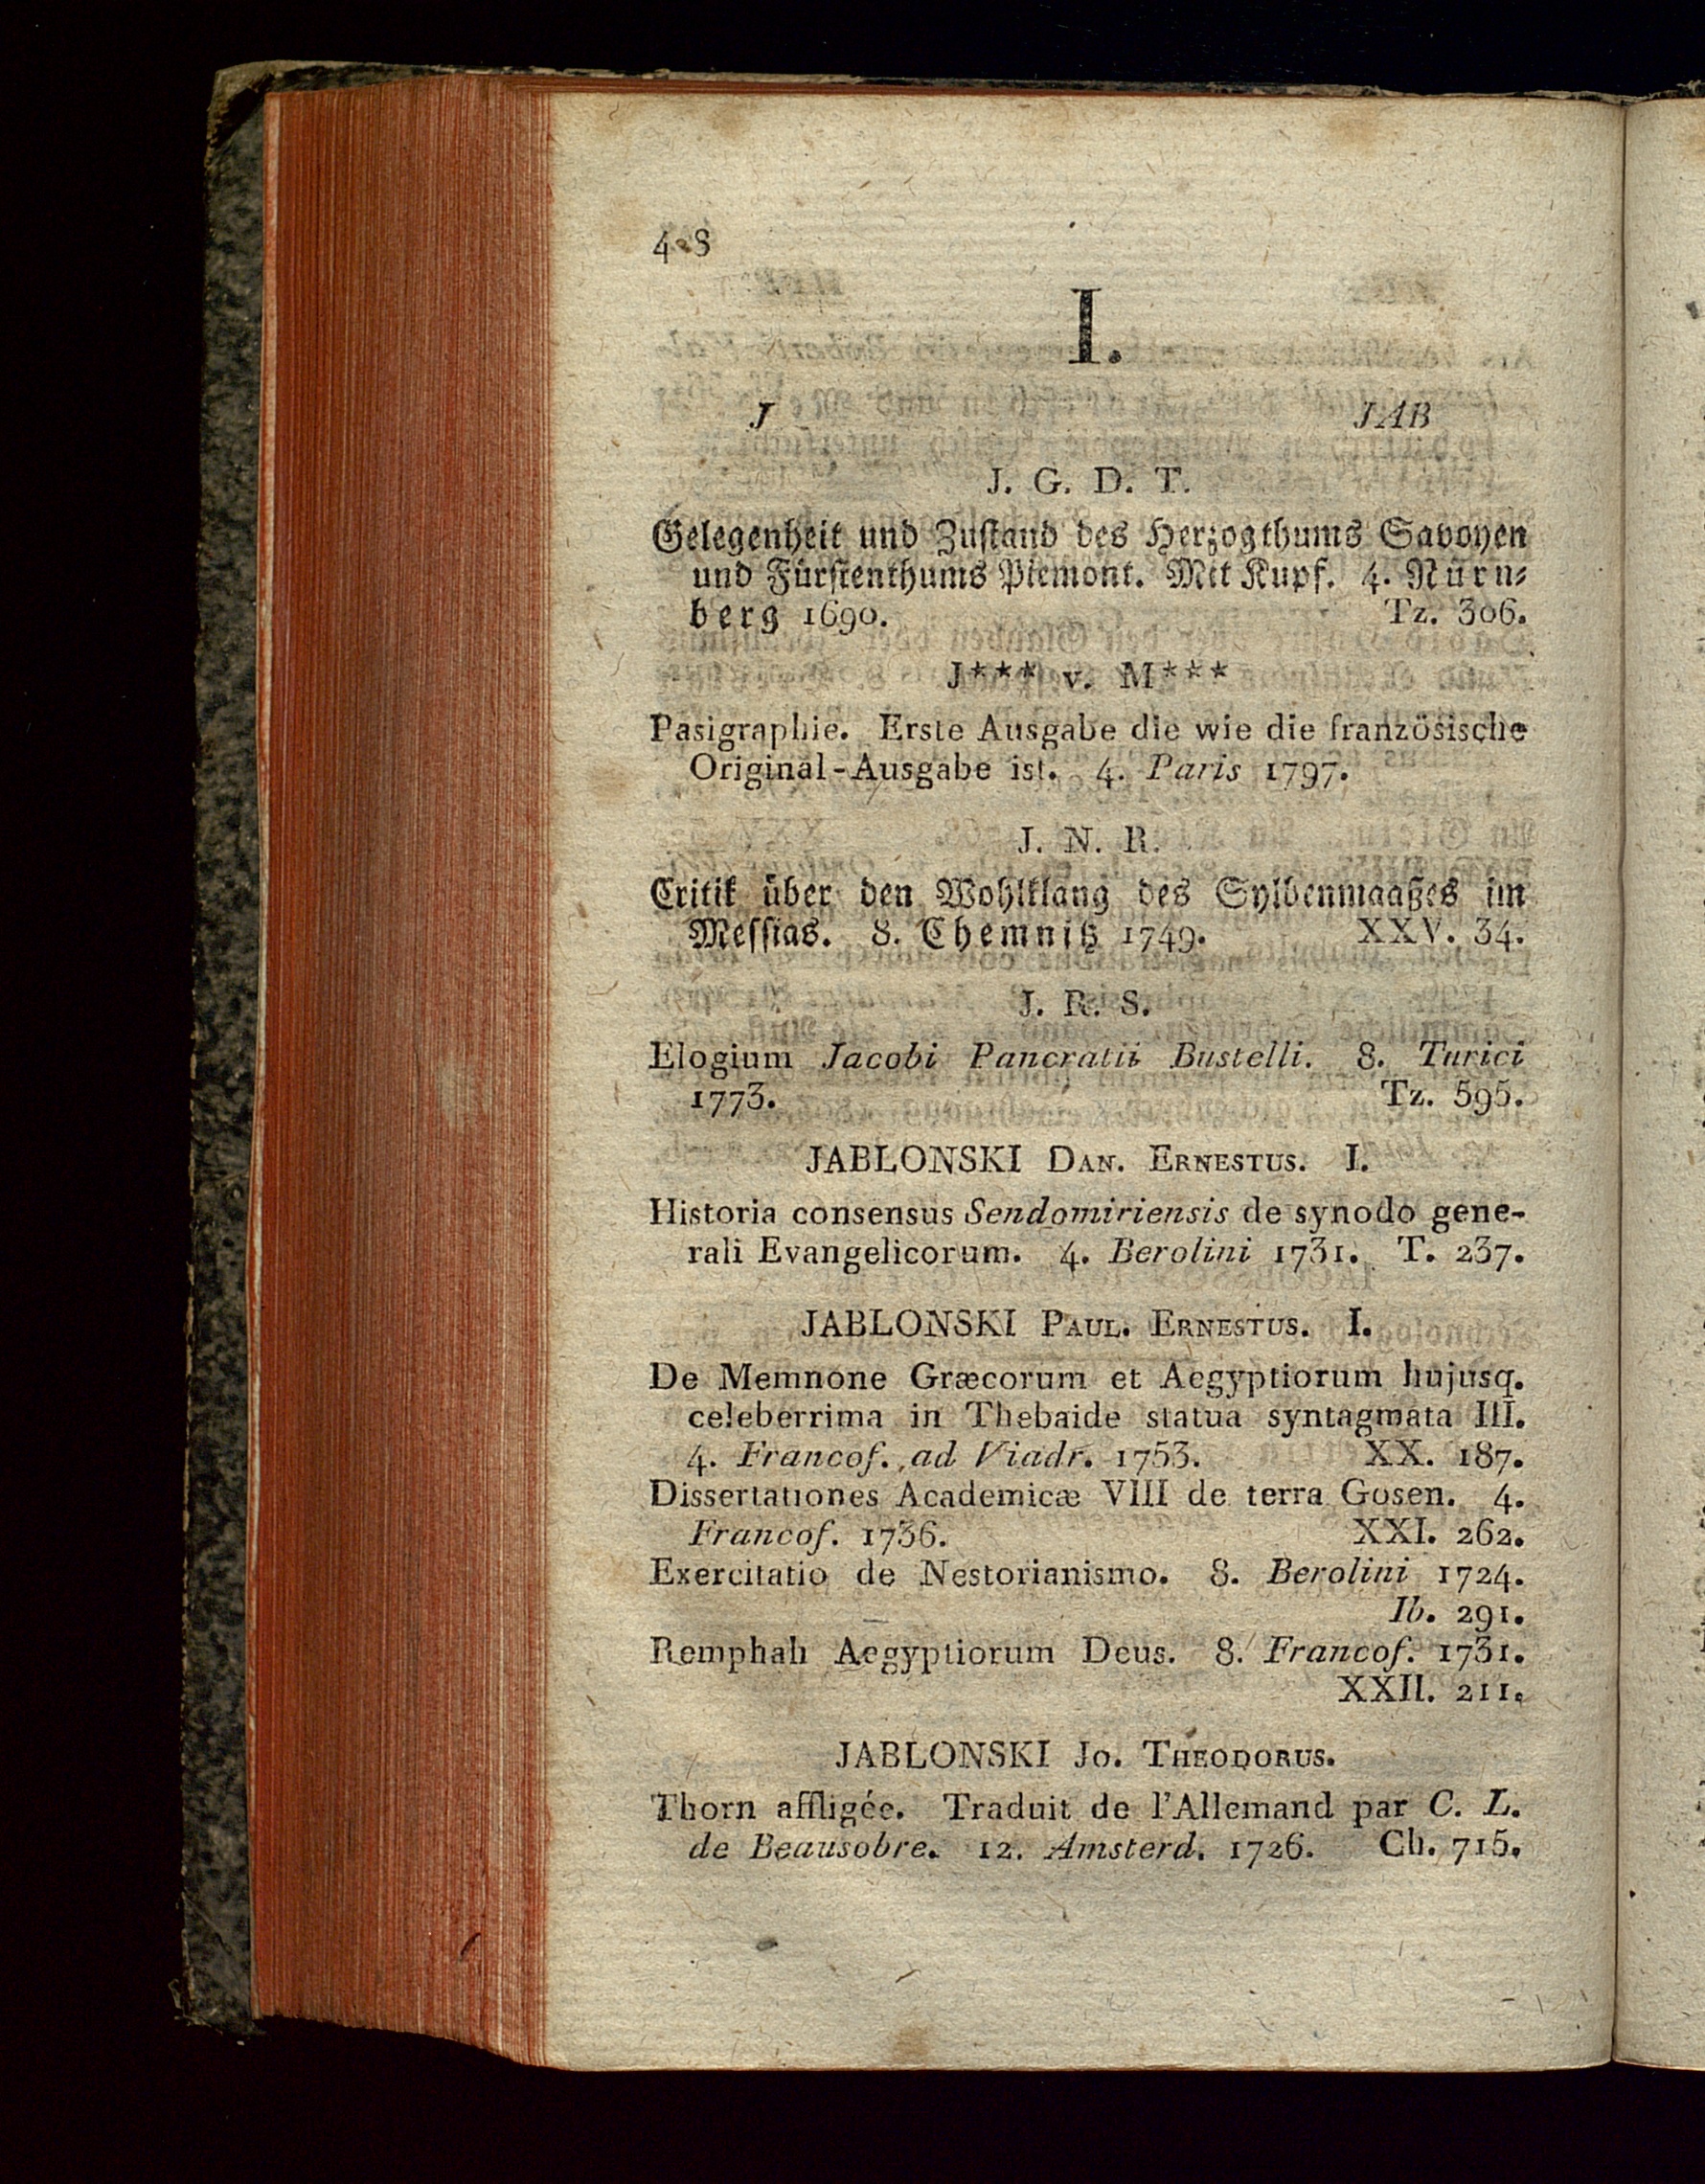 I.
J JAB
J. G. D. T.
Gelegenheit und Zustand des Herzogthums Savoyen
und Fürstenthums Piemont. Mit Kupf. 4. Nürn-
berg 1690. Tz. 306.
J*** v. M***
Pasigraphie. Erste Ausgabe die wie die französische
Original-Ausgabe ist. 4. Paris 1797.
J. N. R.
Critik über den Wohlklang des Sylbenmaaßes im
Messias. 8. Chemnitz 1749. XXV. 34.
J. R. S.
Elogium Jacobi Pancratii Bustelli. 8. Turici
1773. Tz. 595.
JABLONSKI DAN. ERNESTUS. I.
Historia consensus Sendomiriensis de synodo gene-
rali Evangelicorum. 4. Berolini 1731. T. 237.
JABLONSKI PAUL. ERNESTUS. I.
De Memnone Græcorum et Aegyptiorum hujusq.
celeberrima in Thebaide statua syntagmata III.
4. Francof. ad Viadr. 1753. XX. 187.
Dissertationes Academicæ VIII de terra Gosen. 4.
Francof. 1736. XXI. 262.
Exercitatio de Nestorianismo. 8. Berolini 1724.
Ib. 291.
Remphah Aegyptiorum Deus. 8. Francof. 1731.
XXII. 211.
JABLONSKI JO. THEODORUS.
Thorn affligée. Traduit de l'Allemand par C. L.
de Beausobre. 12. Amsterd. 1726. Ch. 715.